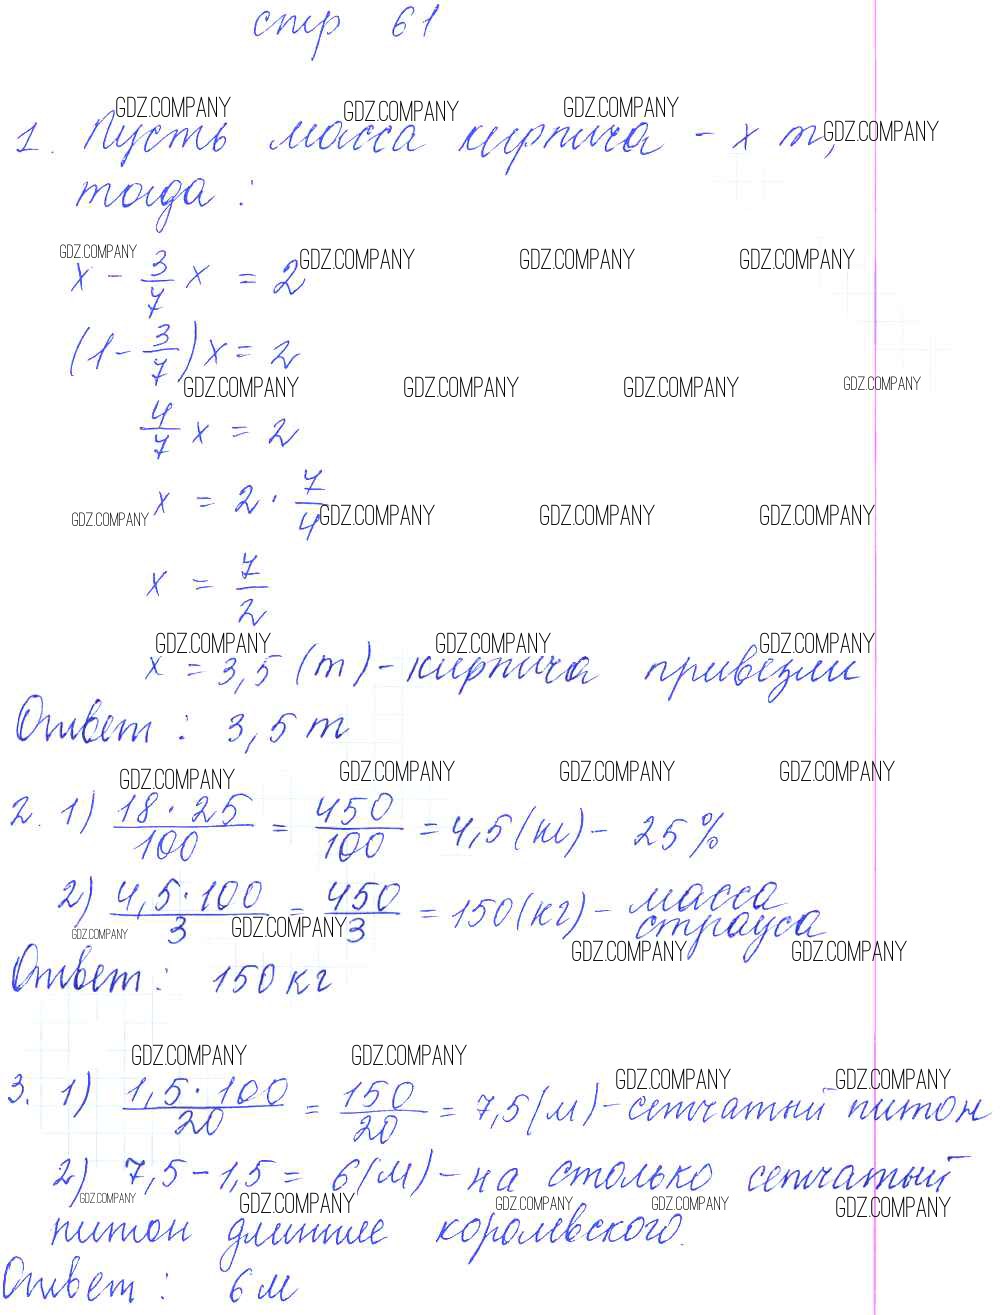 стр 61
GDZ.COMPANY GDZ.COMPANY GDZ.COMPANY
1. Пусть масса кирпича - x т,
GDZ.COMPANY
тогда :
GDZ.COMPANY GDZ.COMPANY GDZ.COMPANY GDZ.COMPANY
x - 3/7 x = 2
(1 - 3/7) x = 2
GDZ.COMPANY GDZ.COMPANY GDZ.COMPANY GDZ.COMPANY
4/7 x = 2
x = 2 · 7/4
GDZ.COMPANY GDZ.COMPANY GDZ.COMPANY GDZ.COMPANY
x = 7/2
GDZ.COMPANY GDZ.COMPANY GDZ.COMPANY
x = 3,5 (т) - кирпича привезли
Ответ : 3,5 т
GDZ.COMPANY GDZ.COMPANY GDZ.COMPANY GDZ.COMPANY
2. 1) 18 · 25/100 = 450/100 = 4,5 (кг) - 25 %
2) 4,5 · 100/3 = 450/3 = 150 (кг) - масса
страуса
GDZ.COMPANY GDZ.COMPANY GDZ.COMPANY GDZ.COMPANY
Ответ : 150 кг
GDZ.COMPANY GDZ.COMPANY GDZ.COMPANY GDZ.COMPANY
3. 1) 1,5 · 100/20 = 150/20 = 7,5 (м) - сетчатый питон
2) 7,5 - 1,5 = 6 (м) - на столько сетчатый
GDZ.COMPANY GDZ.COMPANY GDZ.COMPANY GDZ.COMPANY GDZ.COMPANY
питон длиннее королевского.
Ответ : 6 м